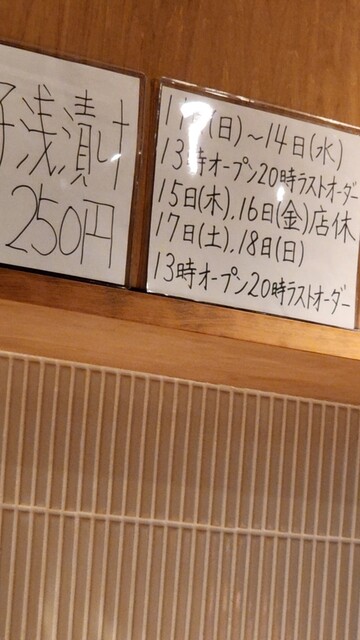 子浅漬け
250円
11日(日)～14日(水)
13時オープン20時ラストオーダー
15日(木).16日(金)店休
17日(土).18日(日)
13時オープン20時ラストオーダー